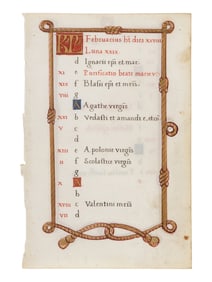 KL Februarius ht dies xxviii
Luna xxix
d Ignacii epi et mar.
xi e Purificatio beate marie v
xix f Blasii epi et mris.
viii g
A Agathe virgis.
xvi b Vedasti et amandi e.
v c
d
xiii e Apolonie virgis.
ii f Scolastice virgis.
g
x A
b
xviii c Valentini mris
vii d